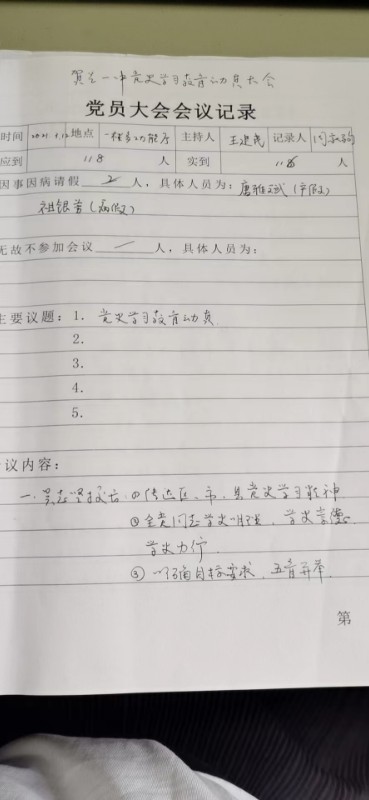 贺兰一中党史学习教育动员大会
党员大会会议记录
时间 2021.4.12 地点 一楼多功能厅 主持人 王建民 记录人
应到 118 人 实到 116 人
因事因病请假 2 人，具体人员为：唐雅斌（产假）
祖银芳（病假）
无故不参加会议 / 人，具体人员为：
主要议题：1. 党史学习教育动员
2.
3.
4.
5.
议内容：
一. 校长：①传达区、市、县党史学习精神
②全党同志学史明理、学史崇德、
学史力行
③明确目标要求，五育并举.
第